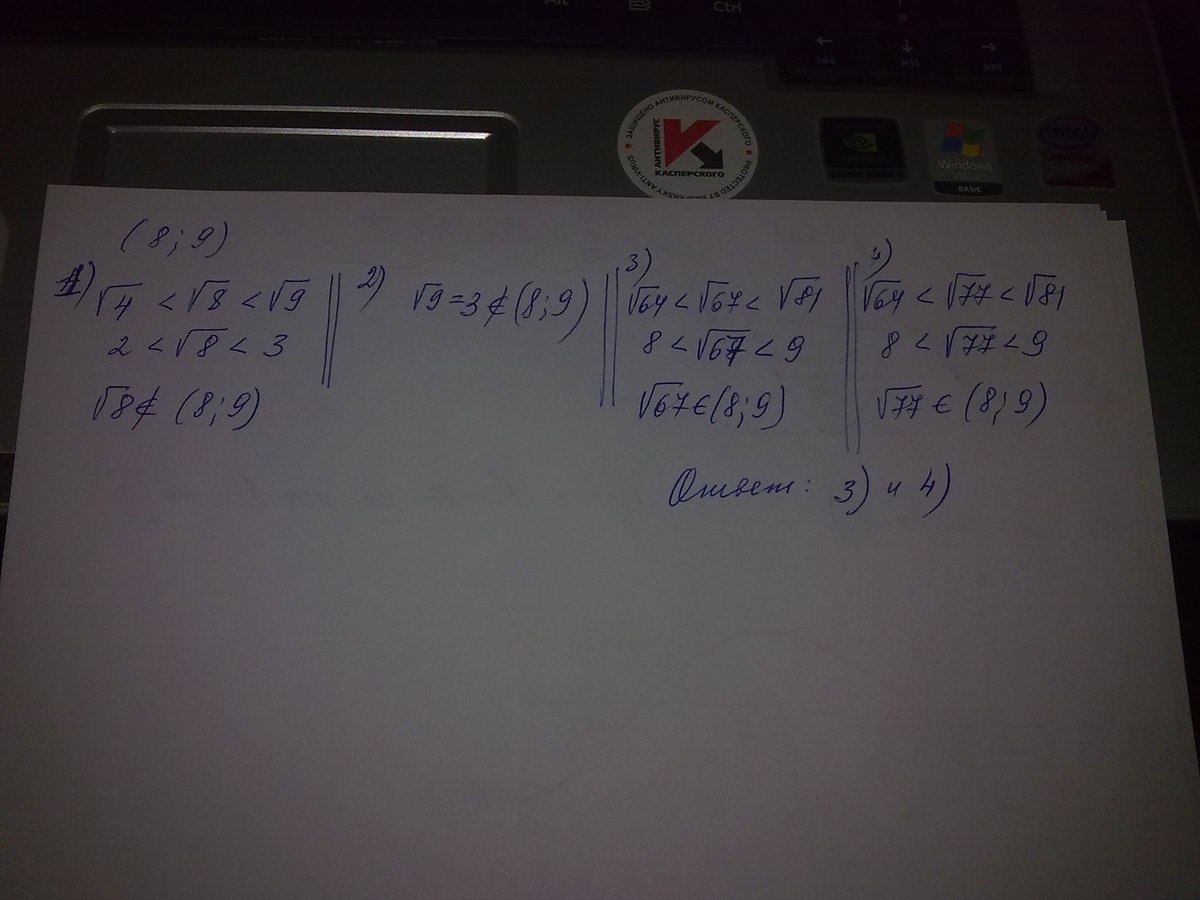 Alt
Ctrl
ЗАЩИЩЕНО АНТИВИРУСОМ КАСПЕРСКОГО
PROTECTED BY KASPERSKY ANTI-VIRUS
АНТИВИРУС
КАСПЕРСКОГО
NVIDIA
Windows
BASIC
intel
(8; 9)
1)
√4 < √8 < √9
2 < √8 < 3
√8 ∉ (8; 9)
2)
√9 = 3 ∉ (8; 9)
3)
√64 < √67 < √81
8 < √67 < 9
√67 ∈ (8; 9)
4)
√64 < √77 < √81
8 < √77 < 9
√77 ∈ (8; 9)
Ответ: 3) и 4)